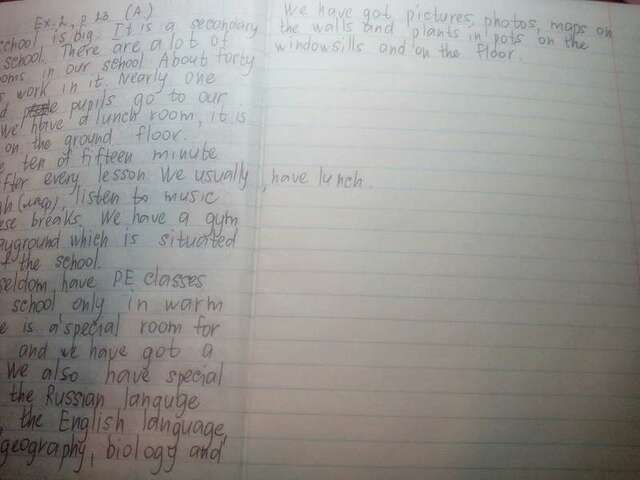 Ex. 2, p 23 (A)
school is big. It is a secondary
school. There are a lot of
ooms in our school About forty
s work in it. Nearly one
d pupils go to our
we have a lunch room, it is
on the ground floor.
e ten of fifteen minute
fter every lesson. We usually have lunch.
gh listen to music
ese breaks. We have a gym
ayground which is situated
f the school.
seldom have PE classes
school only in warm
e is a special room for
and we have got a
We also have special
the Russian languge
, the English language,
geography, biology and
We have got pictures, photos, maps on
the walls and plants in pots on the
windowsills and on the floor.